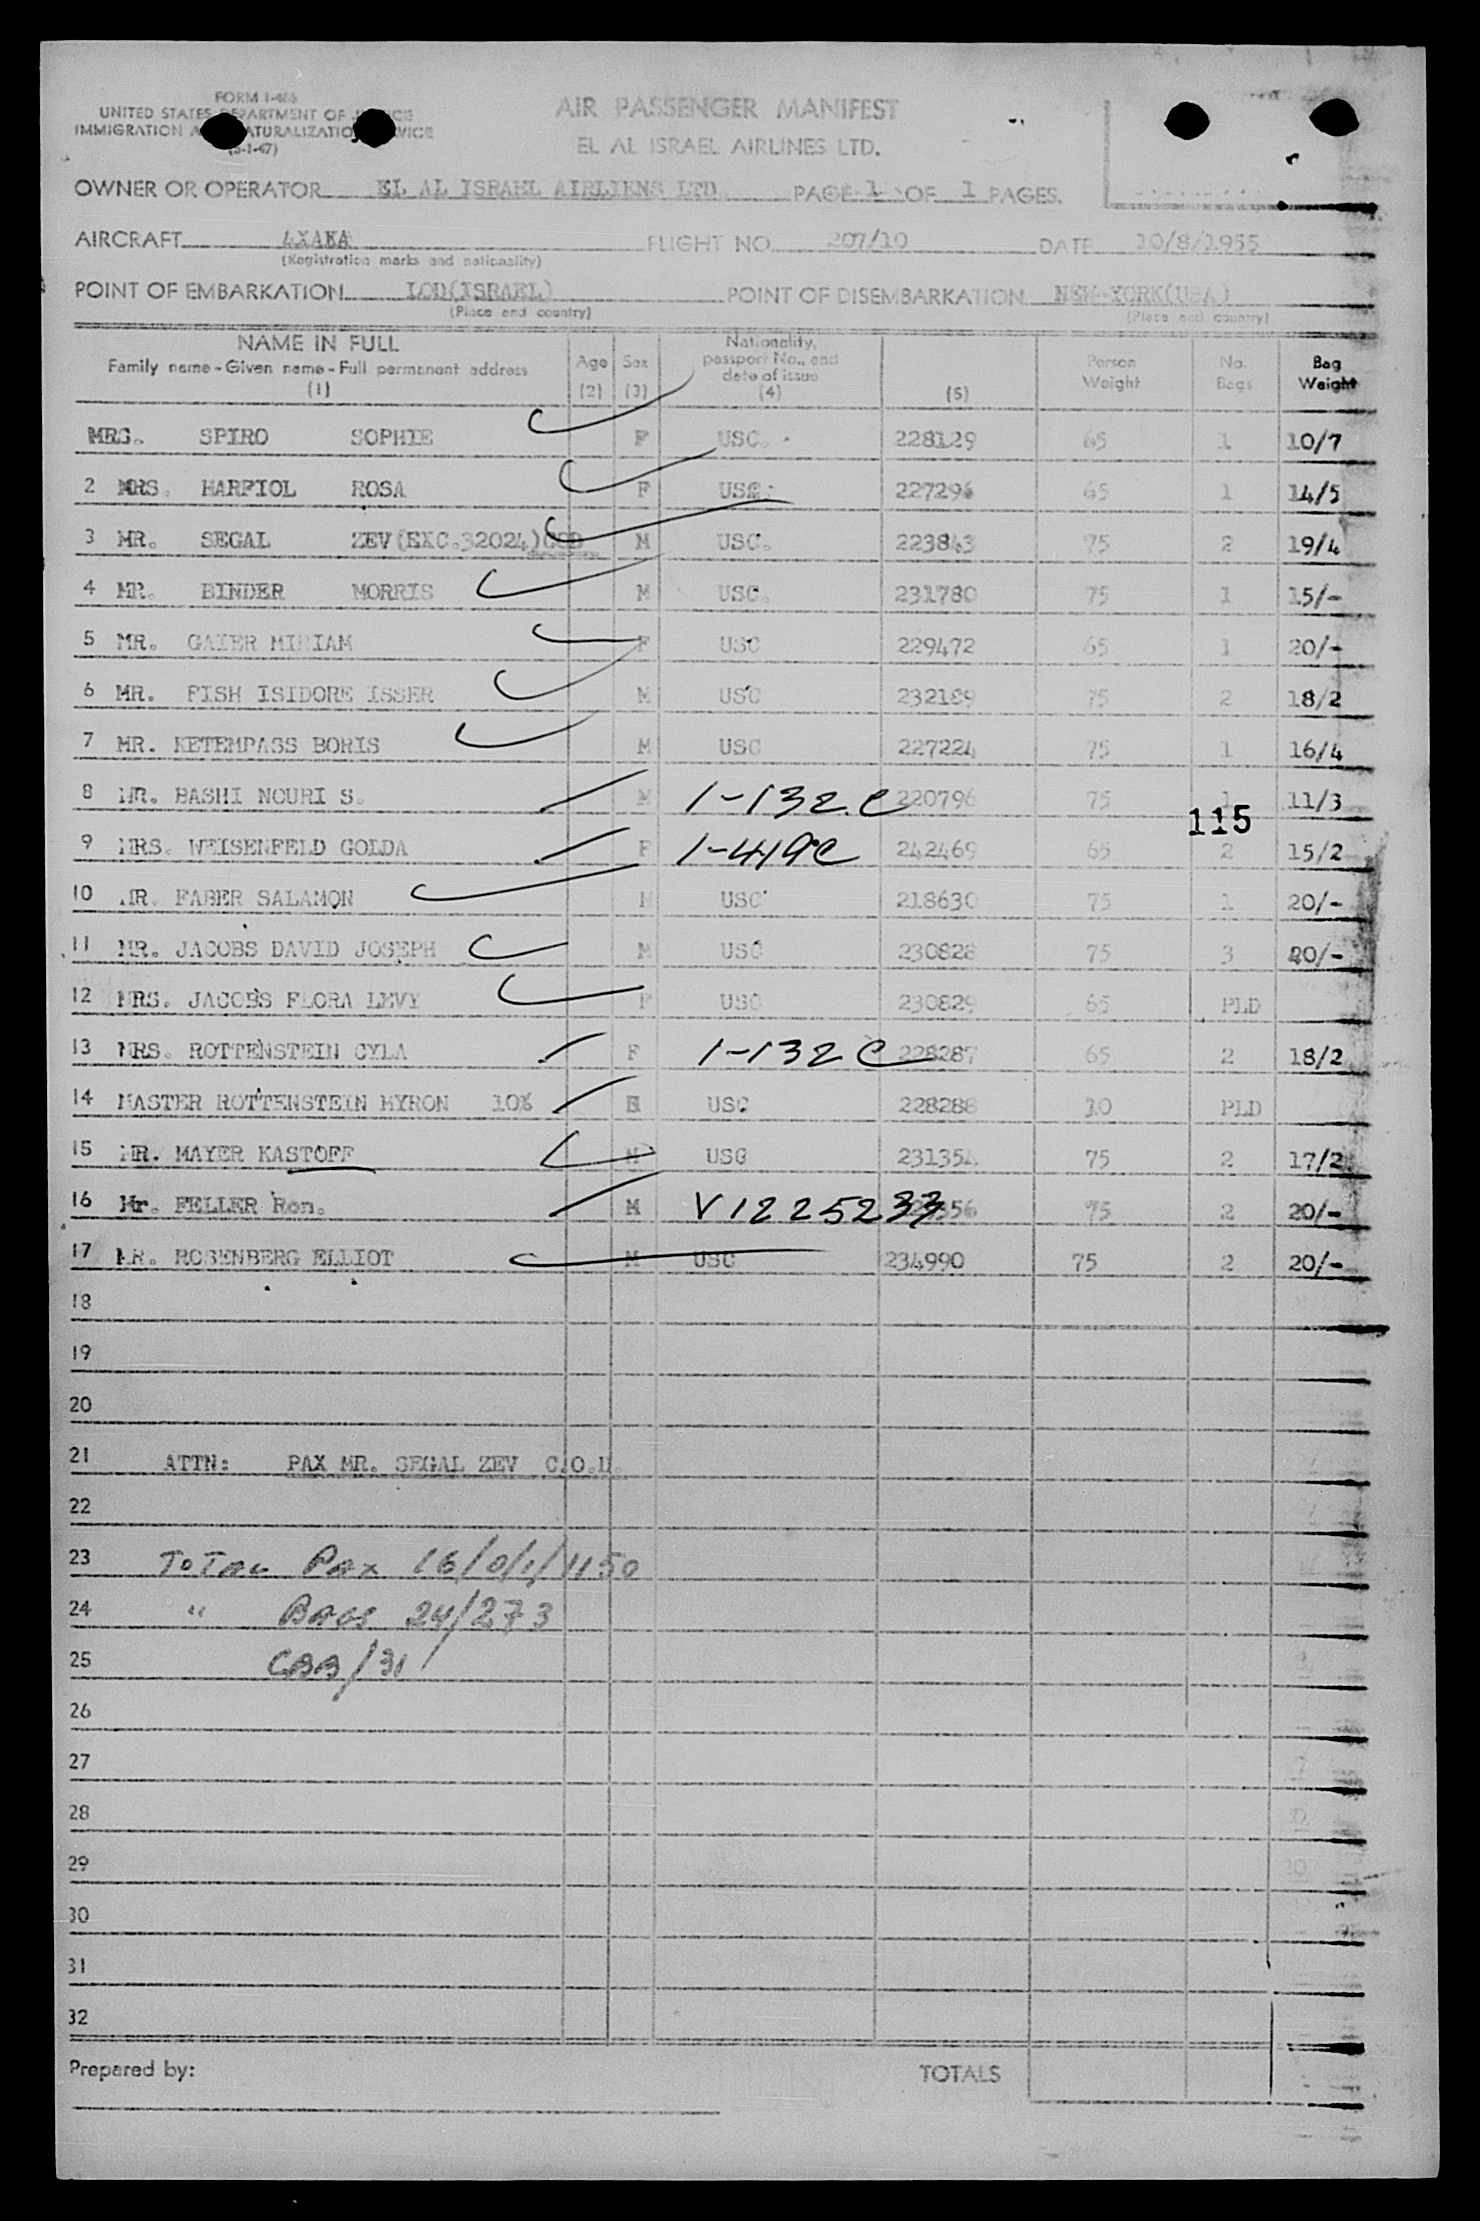 FORM I-466
AIR PASSENGER MANIFEST
UNITED STATES DEPARTMENT OF JUSTICE
IMMIGRATION AND NATURALIZATION SERVICE
(5-1-47)
EL AL ISRAEL AIRLINES LTD.
OWNER OR OPERATOR EL AL ISRAEL AIRLIENS LTD. PAGE 1 OF 1 PAGES.
AIRCRAFT 4XAKA FLIGHT NO. 207/10 DATE 10/8/1955
(Registration marks and nationality)
POINT OF EMBARKATION LOD(ISRAEL) POINT OF DISEMBARKATION NEW-YORK(USA)
(Place and country) (Place and country)
NAME IN FULL
Family name - Given name - Full permanent address
(1)
Age (2)
Sex (3)
Nationality, passport No., and date of issue (4)
(5)
Person Weight
No. Bags
Bag Weight
MRS. SPIRO SOPHIE F USC. 228129 65 1 10/7
2 MRS. HARPIOL ROSA F USC. 227296 65 1 14/5
3 MR. SEGAL ZEV(EXC.32024) M USC. 223843 75 2 19/4
4 MR. BINDER MORRIS M USC. 231780 75 1 15/-
5 MR. GAIER MIRIAM F USC 229472 65 1 20/-
6 MR. FISH ISIDORE ISSER M USC 232189 75 2 18/2
7 MR. KETEMPASS BORIS M USC 227224 75 1 16/4
8 MR. BASHI NOURI S. M 1-132.C 220796 75 1 11/3
115
9 MRS. WEISENFELD GOLDA F 1-419C 242469 65 2 15/2
10 MR. FABER SALAMON M USC 218630 75 1 20/-
11 MR. JACOBS DAVID JOSEPH M USC 230828 75 3 20/-
12 MRS. JACOBS FLORA LEVY F USC 230829 65 PLD
13 MRS. ROTTENSTEIN CYLA F 1-132 C 228287 65 2 18/2
14 MASTER ROTTENSTEIN MYRON 10% M USC 228288 10 PLD
15 MR. MAYER KASTOFF M USC 231354 75 2 17/2
16 Mr. FELLER Ron. M V1225233 75 2 20/-
17 MR. ROSENBERG ELLIOT M USC 234990 75 2 20/-
18
19
20
21 ATTN: PAX MR. SEGAL ZEV C.O.D.
22
23 TOTAL PAX 16/0/1/1150
24 " BAGS 24/273
25 CBB/31
26
27
28
29
30
31
32
Prepared by: TOTALS